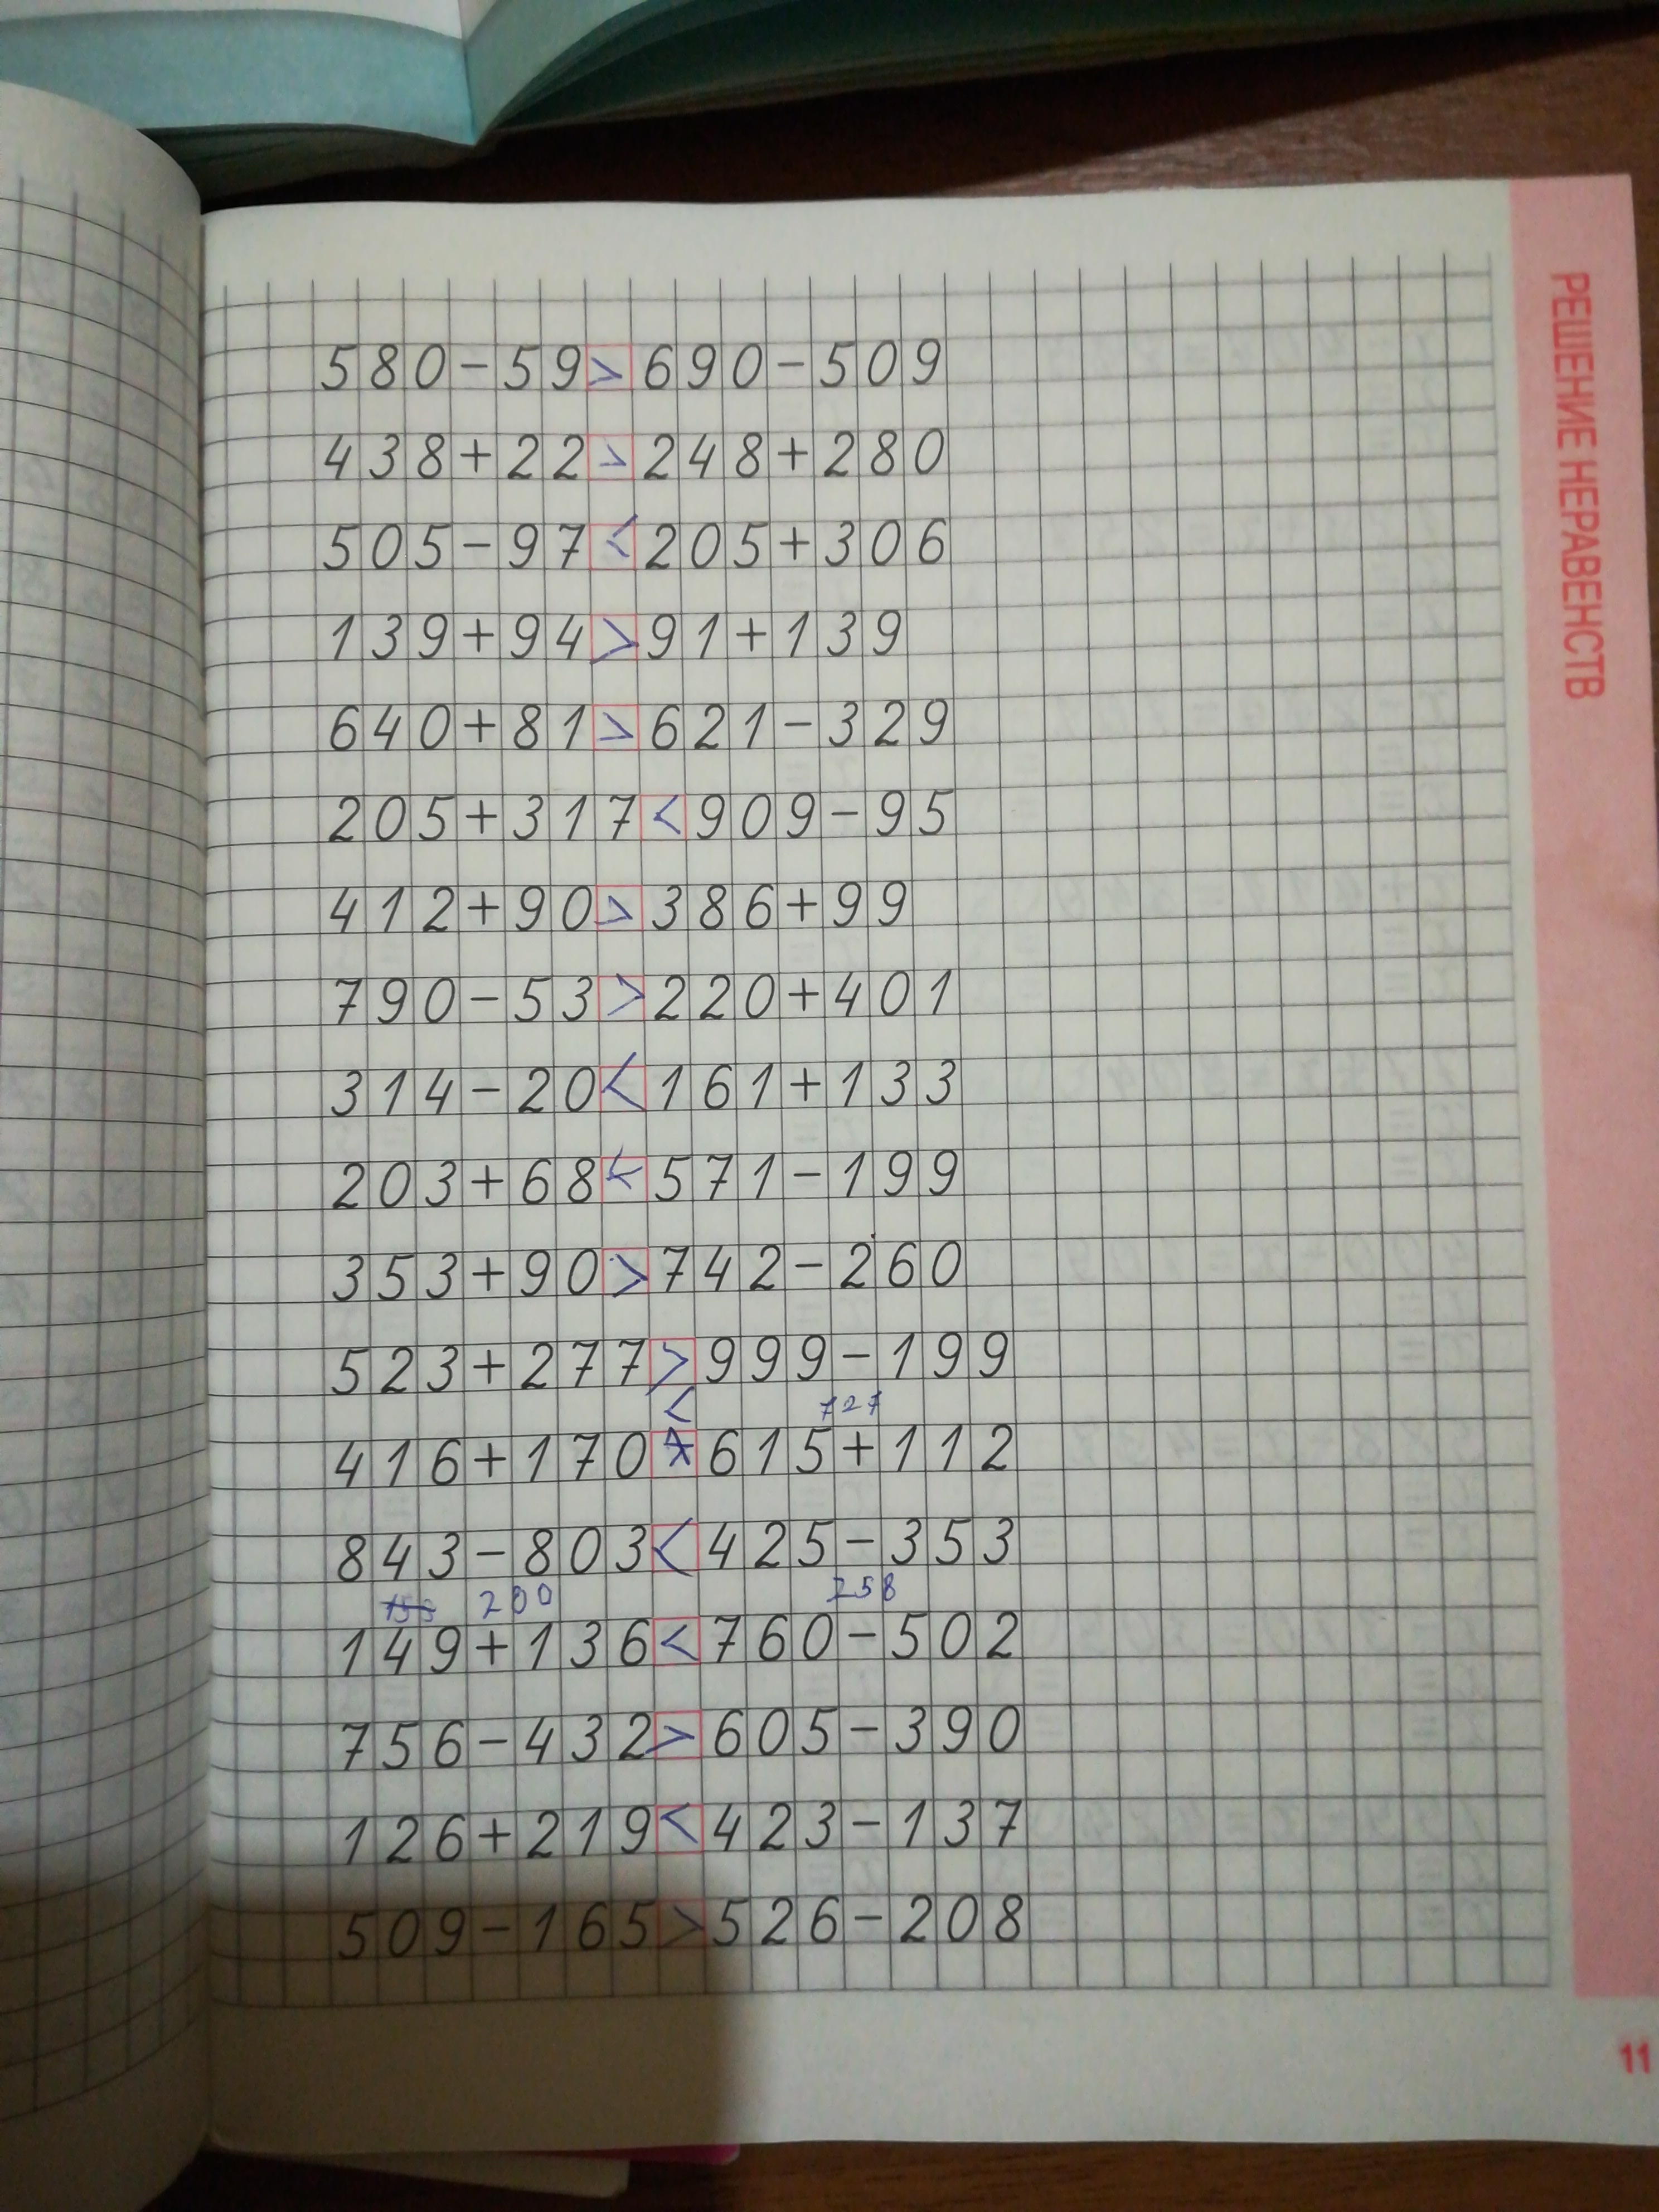 580-59>690-509
438+22>248+280
505-97<205+306
139+94>91+139
640+81>621-329
205+317<909-95
412+90>386+99
790-53>220+401
314-20<161+133
203+68<571-199
353+90>742-260
523+277>999-199
< 727
416+170 615+112
843-803<425-353
200 258
149+136<760-502
756-432>605-390
126+219<423-137
509-165>526-208
РЕШЕНИЕ НЕРАВЕНСТВ
11